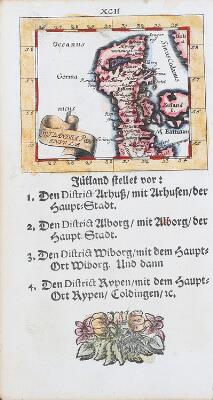 XCII
Oceanus
Germa
nicus
Jütland stellet vor:
1. Den District Arhuß/ mit Arhusen/der
Haupt-Stadt.
2. Den District Alborg/ mit Alborg/ der
Haupt Stadt.
3. Den District Wiborg/ mit dem Haupt-
Ort Wiborg. Und dann
4. Den District Rypen/ mit dem Haupt-
Ort Rypen/ Coldingen/ ꝛc.